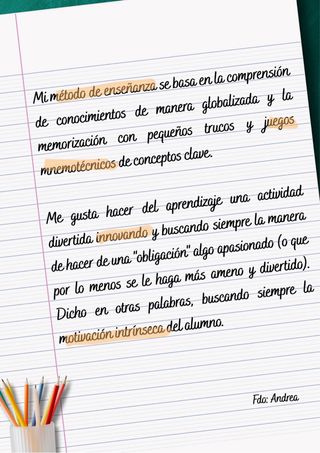 Mi método de enseñanza se basa en la comprensión
de conocimientos de manera globalizada y la
memorización con pequeños trucos y juegos
mnemotécnicos de conceptos clave.
Me gusta hacer del aprendizaje una actividad
divertida innovando y buscando siempre la manera
de hacer de una "obligación" algo apasionado (o que
por lo menos se le haga más ameno y divertido).
Dicho en otras palabras, buscando siempre la
motivación intrínseca del alumno.
Fdo: Andrea